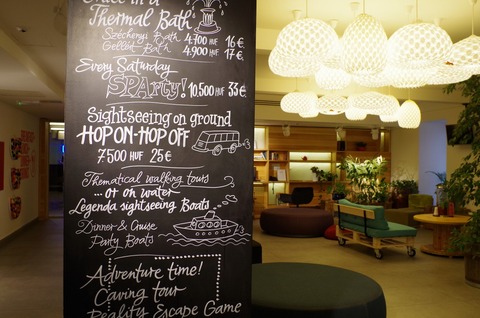 Thermal Bath
Széchenyi Bath 4.700 HUF 16 €
Gellért Bath 4.900 HUF 17 €
Every Saturday
SPArty! 10,500 HUF 33 €
Sightseeing on ground
HOP ON-HOP OFF
7500 HUF 25 €
Thematical walking tours
... or on water
Legenda sightseeing Boats
Dinner & Cruise
Party Boats
Adventure time!
Caving tour
Reality Escape Game